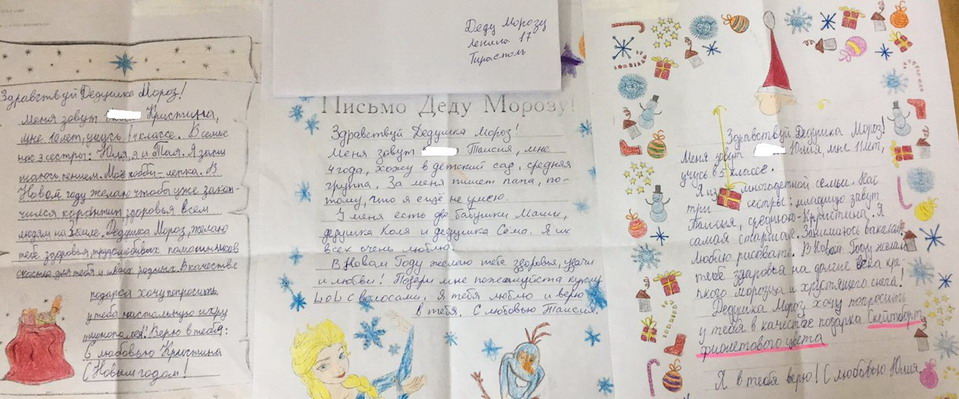 Деду Морозу
Ленина 17
Тирасполь
Здравствуй Дедушка Мороз!
Меня зовут Кристина,
мне 10 лет, учусь классе. В семье
нас 3 сестры: Юля, я и Тая. Я зани
маюсь пением. Моё хобби - лепка. В
Новом году желаю чтобы уже закон-
чился здоровья всем
людям на земле. Дедушка Мороз, желаю
тебе здоровья, трудолюбивых помощников
для тебя и твоих родных. В качестве
подарка хочу попросить
у тебя настольную игру
Верю в тебя!
С любовью Кристина
С Новым годом!
Письмо Деду Морозу!
Здравствуй Дедушка Мороз!
Меня зовут Таисия, мне
4 года, хожу в детский сад, средняя
группа. За меня пишет папа, по-
тому, что я ещё не умею.
У меня есть две бабушки Маши,
дедушка Коля и дедушка Сёма. Я их
всех очень люблю.
В Новом Году желаю тебе здоровья, удачи
и любви! Подари мне пожалуйста куклу
LOL с волосами. Я тебя люблю и верю
в тебя, С любовью Таисия.
Здравствуй Дедушка Мороз!
Меня зовут Юлия, мне 11 лет,
учусь в 5 классе.
Я из многодетной семьи. Нас
три сестры: младшую зовут
Таисия, среднюю - Кристина. Я
самая старшая. Занимаюсь вокалом,
люблю рисовать. В Новом Году желаю
тебе здоровья на долгие века, кре-
пкого морозца и хрустящего снега!
Дедушка Мороз, хочу попросить
у тебя в качестве подарка Скейтборд
фиолетового цвета
Я в тебя верю! С любовью Юлия